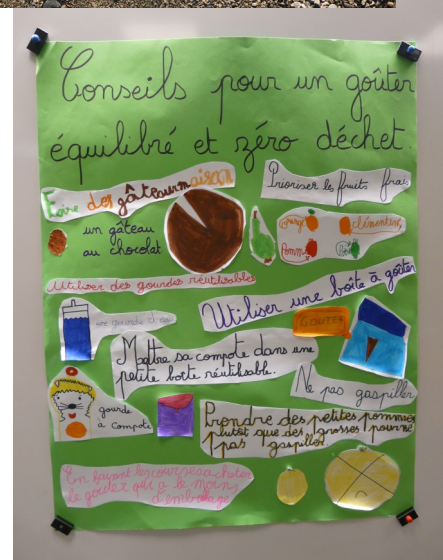 Conseils pour un goûter
équilibré et zéro déchet.
Faire des gâteaux maison
Prioriser les fruits frais
un gâteau
au chocolat
orange
clémentine,
Pomme
Utiliser des gourdes réutilisables
Utiliser une boîte à goûter
une gourde d'eau
GOUTER
Mettre sa compote dans une
petite boite réutilisable.
Ne pas gaspiller
gourde
à compote
Prendre des petites pommes
plutôt que des grosses pour ne
pas gaspiller.
En fayant les courses acheter
le gouter qui a le moin
d'embalage